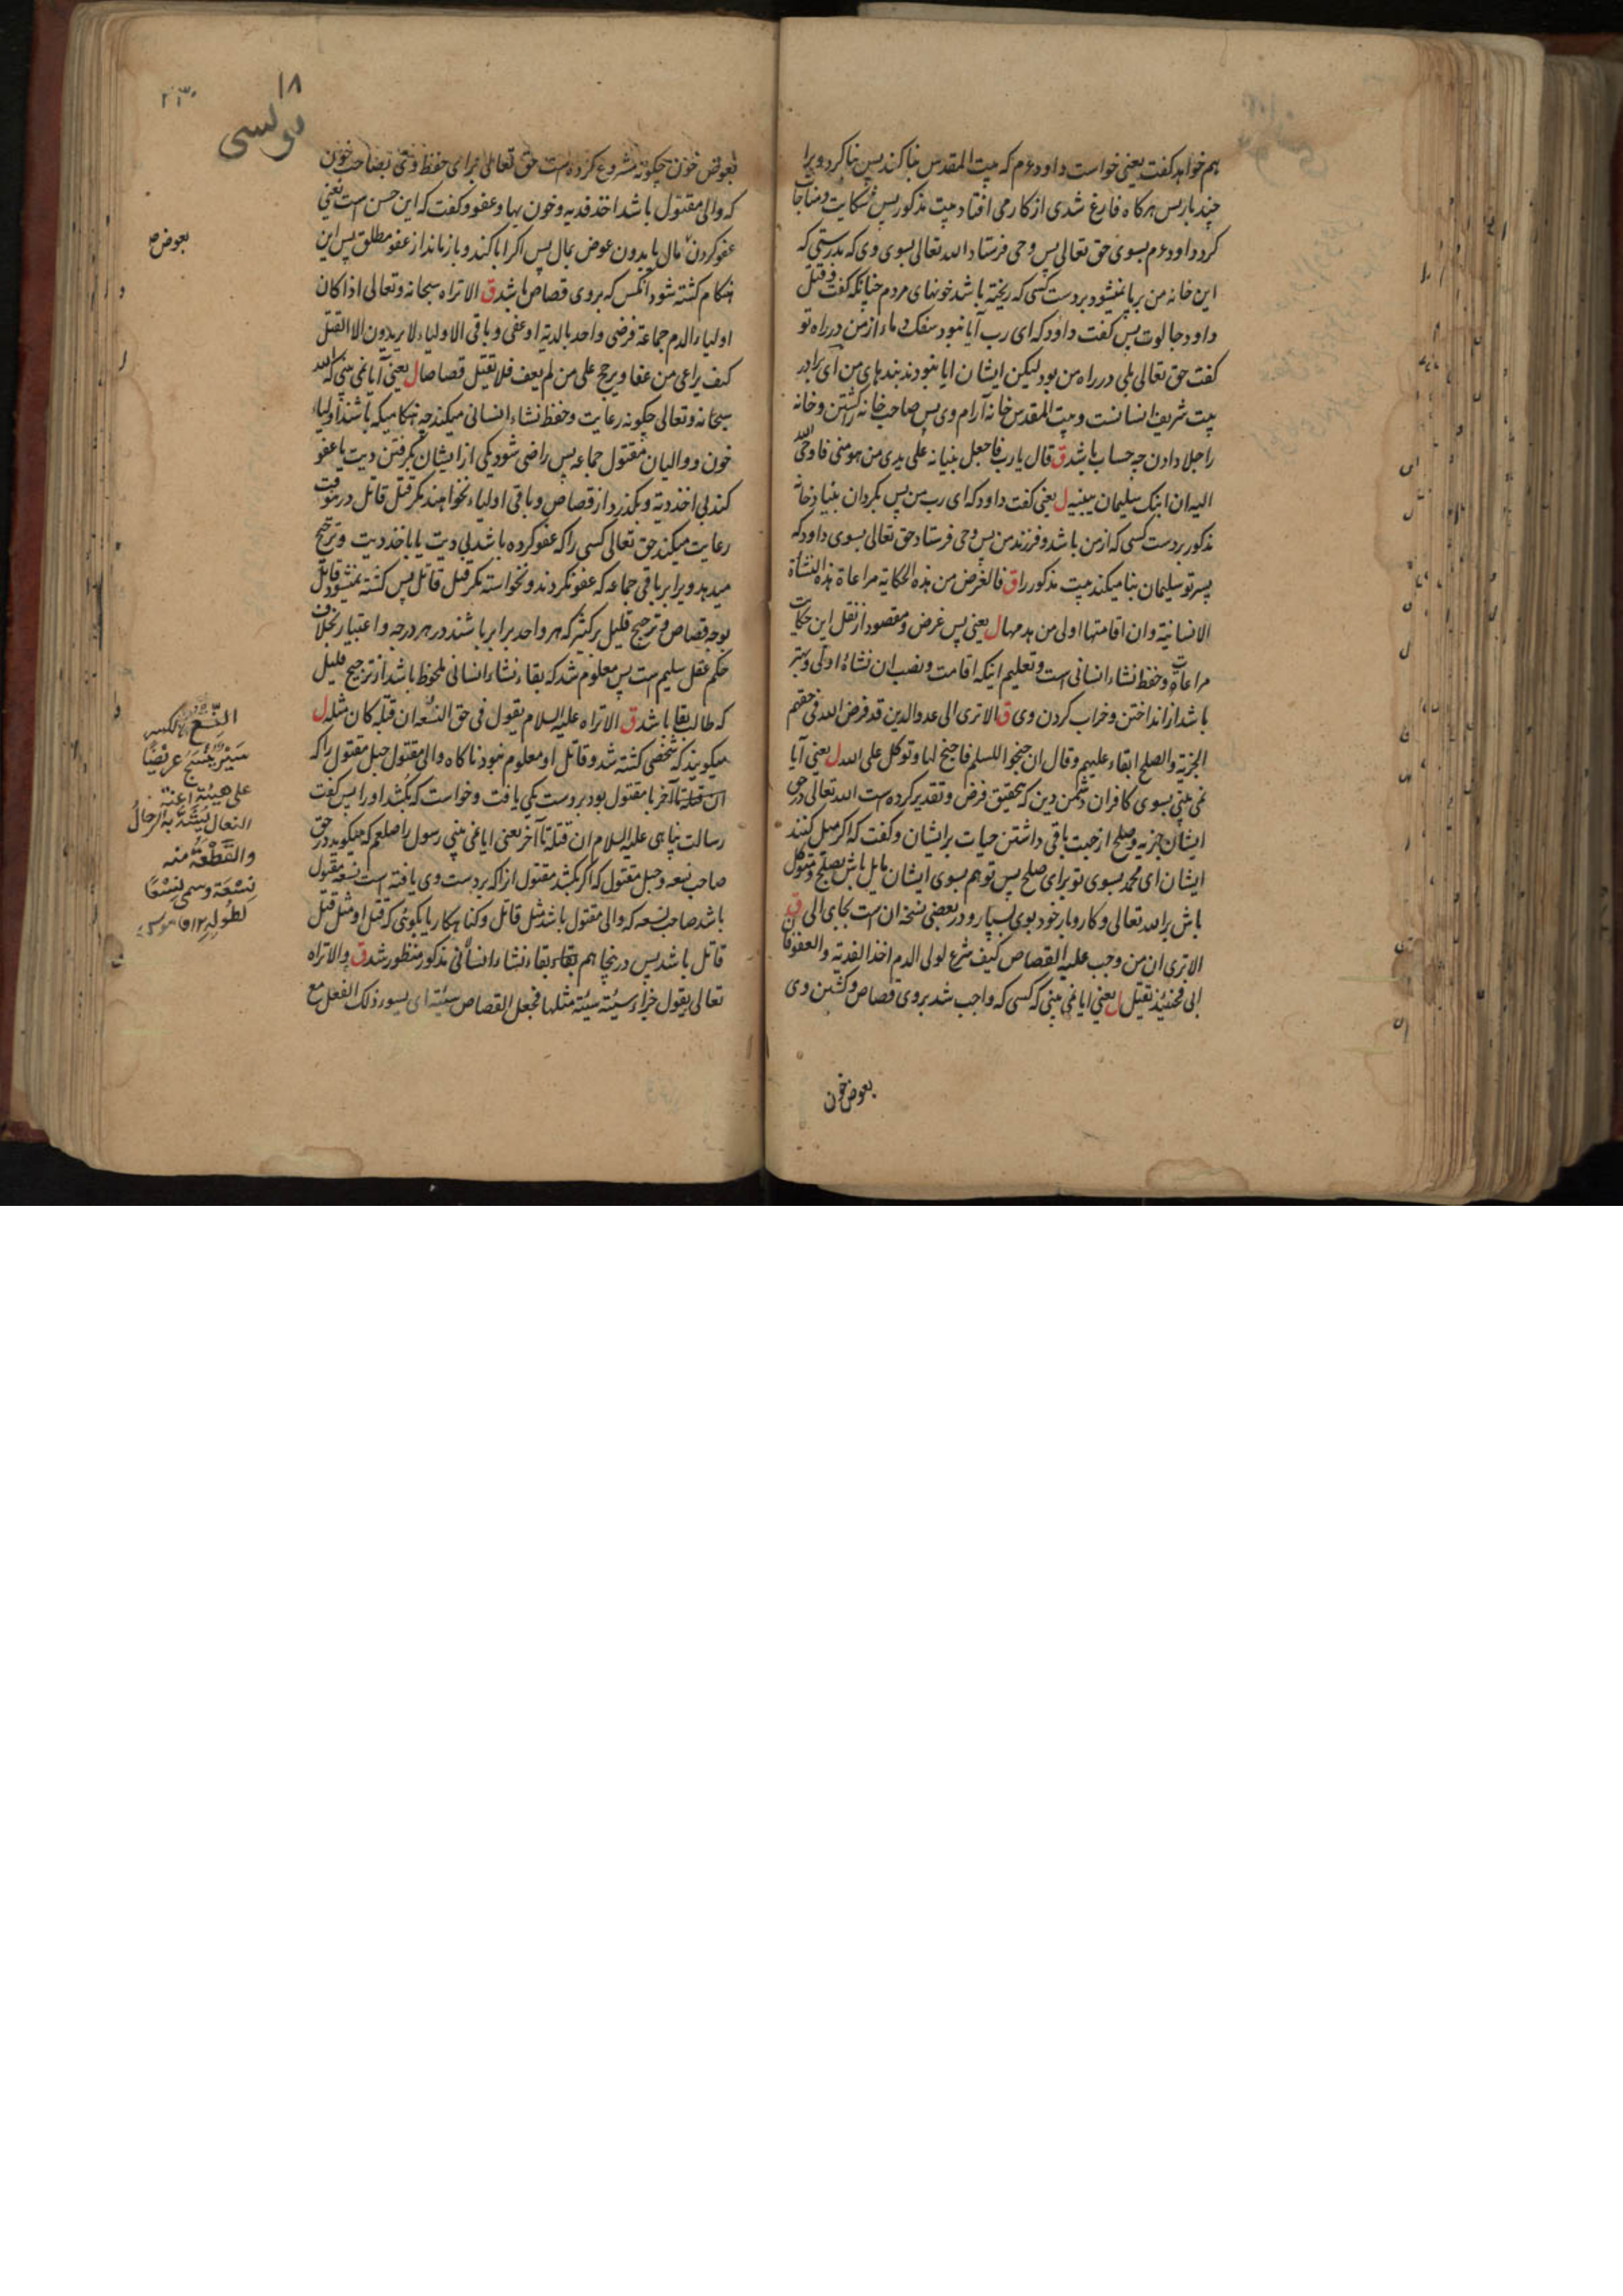 هم خواهد کفت یعنی خواست داود ع م که بیت المقدس بنا کند پس بنا کرد ویرا
چند بار پس هرکاه فارغ شدی از کار می افتاد بیت مذکور پس شکایت و مناجات
کرد داود ع م بسوی حق تعالی پس وحی فرستاد الله تعالی بسوی وی که بدرستی که
این خانه من برپا نمیشود بر دست کسی که ریخته باشد خونهای مردم چنانکه کفت و قتل
داود جالوت پس کفت داود که ای رب آیا نبود سفک دماء از من در راه تو
کفت حق تعالی بلی در راه من بود لیکن ایشان ایا نبودند بندهای من ای برادر
بیت شریف انسانست و بیت المقدس خانه آرام وی پس صاحب خانه را کشتن و خانه
را جلا دادن چه حساب باشد ق قال یا رب فاجعل بنیانه علی یدی من هو منی فاوحی الله
الیه ان ابنک سلیمان یبنیه ل یعنی کفت داود که ای رب من پس بکردان بنیاد خانه
مذکور بر دست کسی که از من باشد و فرزند من پس وحی فرستاد حق تعالی بسوی داود که
پسر تو سلیمان بنا میکند بیت مذکور را ق فالغرض من هذه الحکایة مراعاة هذه النشأة
الانسانیة وان اقامتها اولی من هدمها ل یعنی پس غرض و مقصود از نقل این حکایت
مراعات و حفظ نشاء انسانی است و تعلیم اینکه اقامت و نصب ان نشاة اولی و بهتر
باشد از انداختن و خراب کردن وی ق الا تری الی عدو الدین قد فرض الله فی حقهم
الجزیة والصلح ابقاء علیهم وقال ان جنحوا للسلم فاجنح لها وتوکل علی الله ل یعنی آیا
نمی بینی بسوی کافران دشمن دین که بتحقیق فرض و تقدیر کرده است الله تعالی در حق
ایشان جزیه و صلح از جهت باقی داشتن حیات بر ایشان و کفت که اکر میل کنند
ایشان ای محمد بسوی تو برای صلح پس تو هم بسوی ایشان مایل باش بصلح و متوکل
باش بر الله تعالی و کاروبار خود بوی بسپار و در بعضی نسخه ان است بجای الی ق
الا تری ان من وجب علیه القصاص کیف شرع لولی الدم اخذ الفدیة والعفو فان
ابی فحینئذ یقتل ل یعنی ایا نمی بینی که کسی که واجب شد بر وی قصاص و کشتن وی
بعوض خون
۱۸
۲۳۰
بعوض خون چکونه مشروع کرده است حق تعالی برای حفظ وی بصاحب خون
که والی مقتول باشد اخذ فدیه و خون بها و عفو و کفت که این حسن است یعنی
عفو کردن بمال یا بدون عوض بمال پس اکر ابا کند و باز ماند از عفو مطلق پس این
هنکام کشته شود انکس که بروی قصاص باشد ق الا تراه سبحانه وتعالی اذا کان
اولیاء الدم جماعة فرضی واحد بالدیة او عفی وباقی الاولیاء لا یریدون الا القتل
کیف یراعی من عفا ویرجح علی من لم یعف فلا یقتل قصاصا ل یعنی آیا نمی بینی که الله
سبحانه وتعالی چکونه رعایت و حفظ نشاء انسانی میکند چه هنکامیکه باشند اولیاء
خون و والیان مقتول جماعه پس راضی شود یکی از ایشان بکرفتن دیت یا عفو
کند بی اخذ دیه و بکذرد از قصاص و باقی اولیاء نخواهند مکر قتل قاتل درینوقت
رعایت میکند حق تعالی کسی را که عفو کرده باشد بی دیت یا باخذ دیت و ترجیح
میدهد ویرا بر باقی جماعه که عفو نکردند و نخواسته مکر قتل قاتل پس کشته نمیشود قاتل
بوجه قصاص و ترجیح قلیل بر کثیر که هر واحد برابر باشند در هر درجه و اعتبار بخلاف
حکم عقل سلیم است پس معلوم شد که بقاء نشاء انسانی ملحوظ باشد از ترجیح قلیل
که طالب بقا باشد ق الا تراه علیه السلام یقول فی حق النسعه ان قتله کان مثله ل
میکویند که شخصی کشته شد و قاتل او معلوم نبود ناکاه والی مقتول حبل مقتول را که
ان قتله تا آخر با مقتول بود بر دست یکی یافت و خواست که بکشد اورا پس کفت
رسالت پناهی علیه السلام ان قتله تا آخر یعنی ایا نمی بینی رسول را صلعم که میکوید در حق
صاحب نسعه و حبل مقتول که اکر بکشد مقتول ازا که بر دست وی یافته است نسعه مقتول
باشد صاحب نسعه که والی مقتول باشد مثل قاتل و کناهکار یا بکوئی که قتل او مثل قتل
قاتل باشد پس درینجا هم بقاء بقاء نشاء انسانی مذکور منظور شد ق والا تراه
تعالی یقول جزاء سیئة سیئة مثلها فجعل القصاص سیئة ای یسوء ذلک الفعل مع
بعوض
النسع بالکسر
سیر ینسج عریضا
علی هیئة اعنة
النعال یشد به الرحال
والقطعة منه
نسعة وسمی نسعا
لطوله ۱۲ قاموس